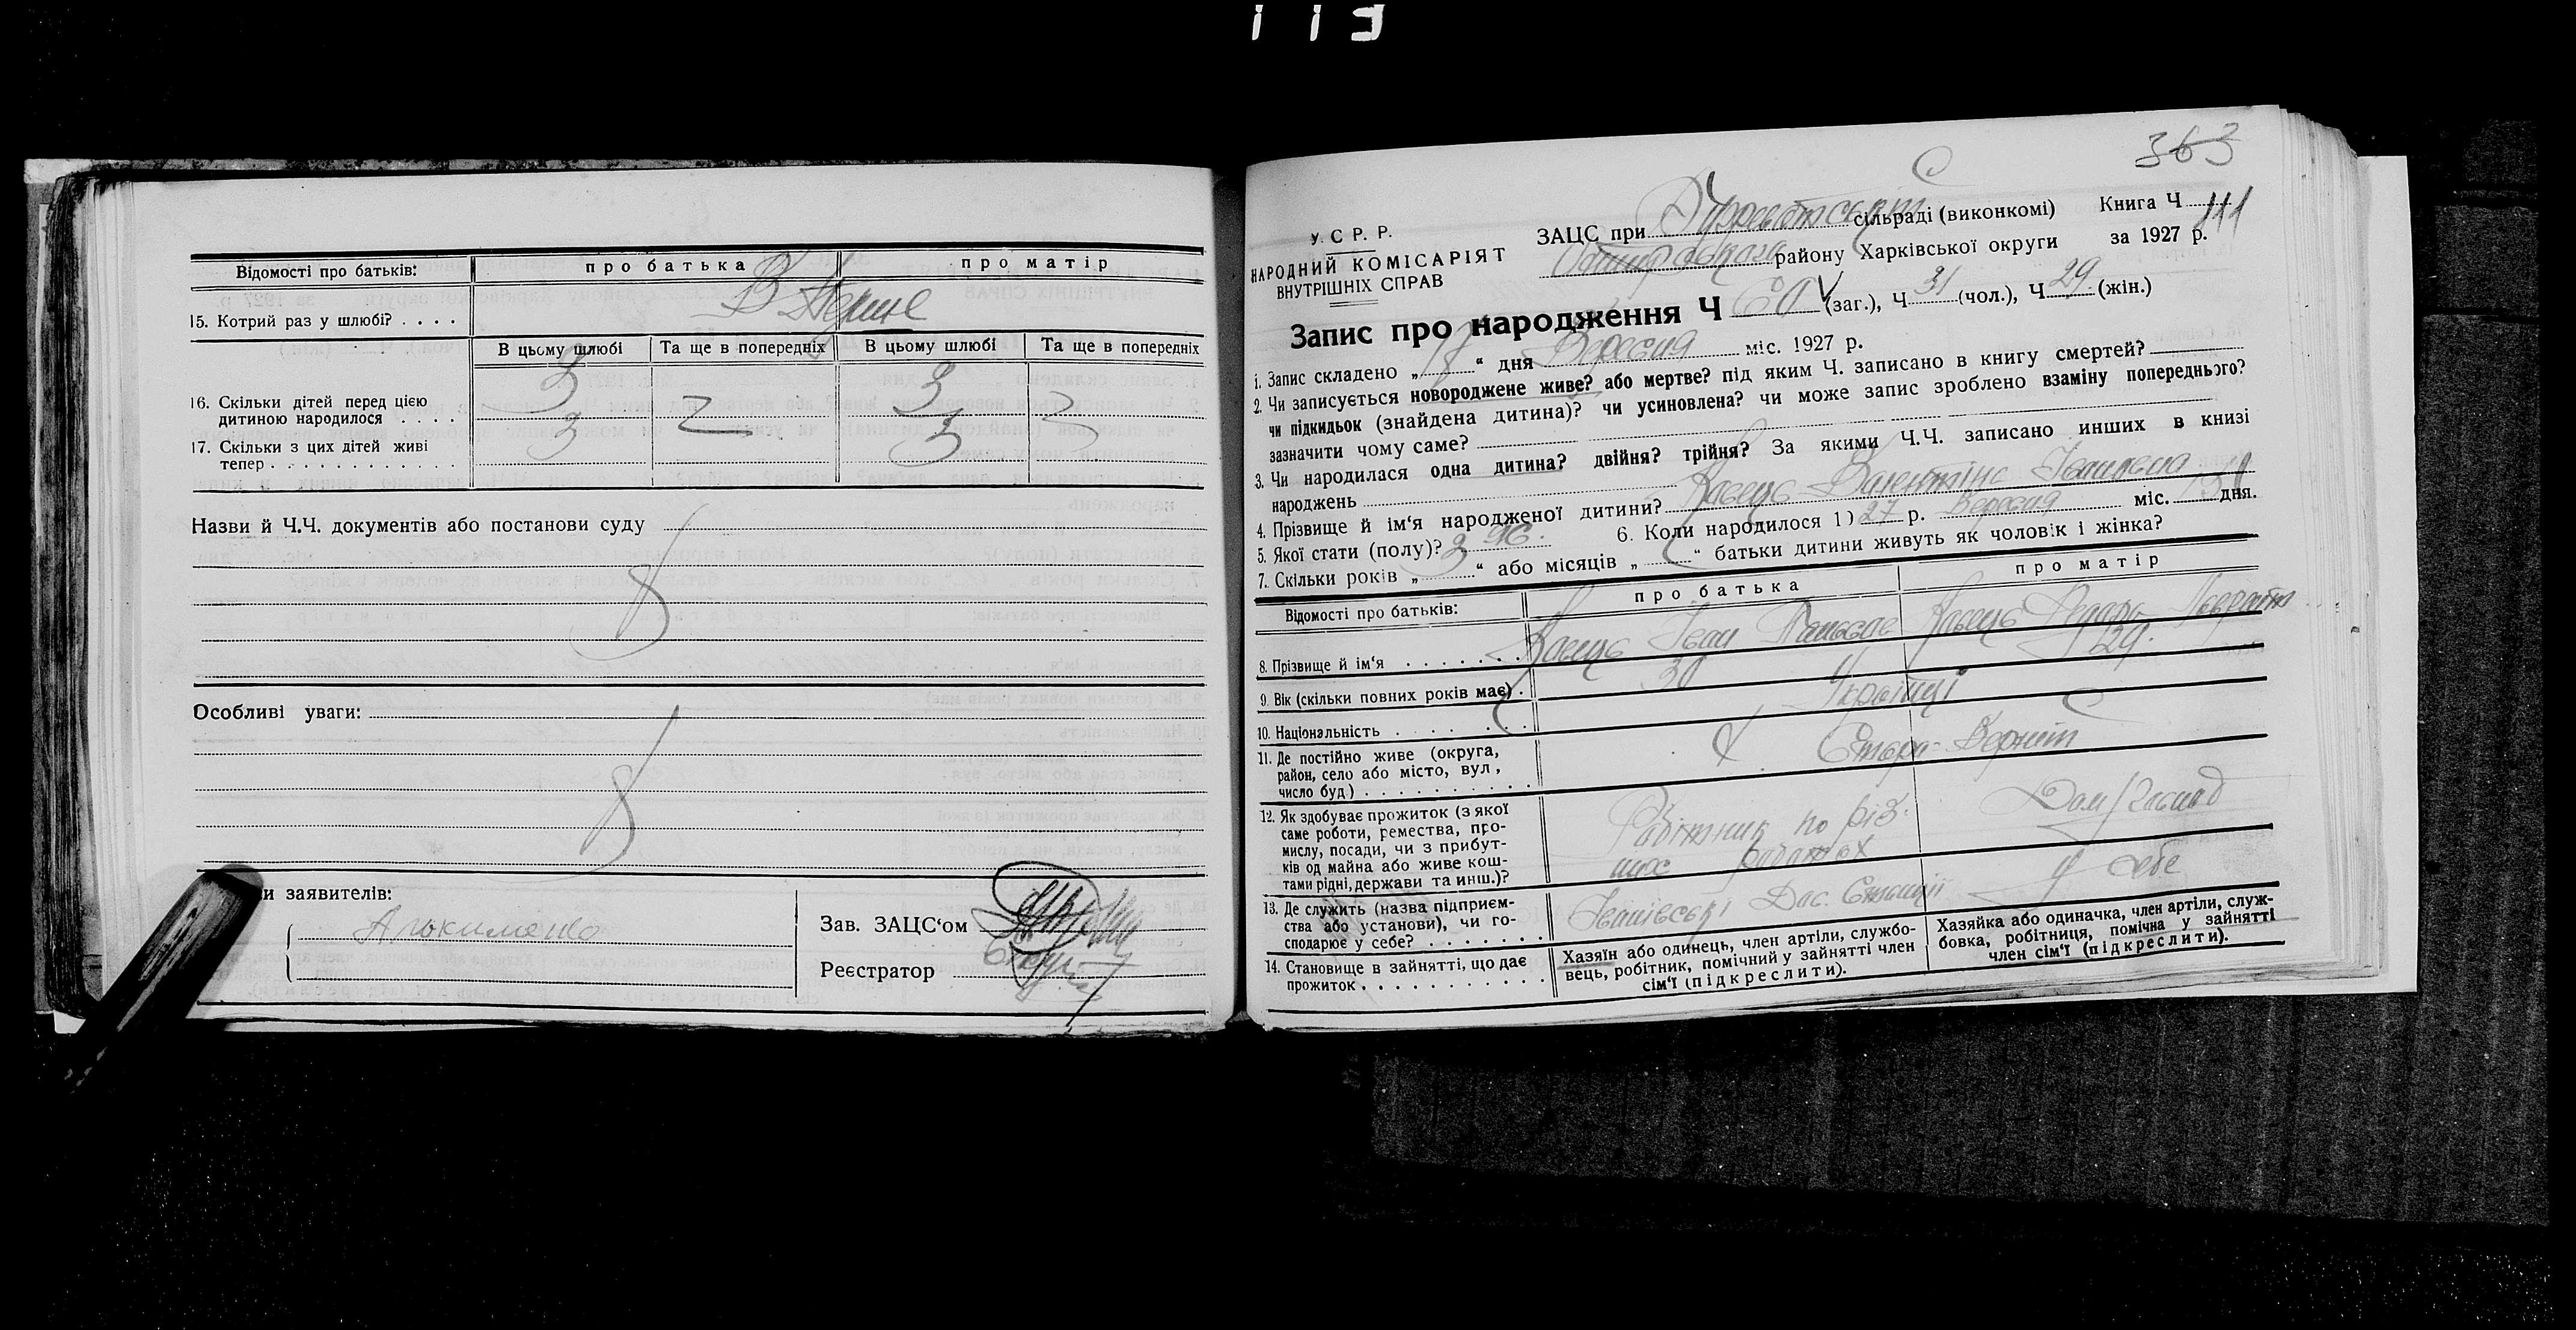 113
Відомості про батьків: про батька про матір
15. Котрий раз у шлюбі? . . . . В перше
В цьому шлюбі Та ще в попередніх В цьому шлюбі Та ще в попередніх
16. Скільки дітей перед цією
дитиною народилося . . . . 3 3
17. Скільки з цих дітей живі
тепер . . . . . . . . . . . . 3 3
Назви й Ч.Ч. документів або постанови суду
Особливі уваги:
и заявителів:
Зав. ЗАЦС‘ом
Реєстратор
363
У. С Р. Р.
НАРОДНИЙ КОМІСАРІЯТ
ВНУТРІШНІХ СПРАВ
ЗАЦС при сільраді (виконкомі) Книга Ч 111
району Харківської округи за 1927 р.
Запис про народження Ч 60 (заг.), Ч 31 (чол.), Ч 29 (жін.)
1. Запис складено „ “ дня Вересня міс. 1927 р.
2. Чи записується новороджене живе? або мертве? під яким Ч. записано в книгу смертей?
чи підкидьок (знайдена дитина)? чи усиновлена? чи може запис зроблено взаміну попереднього?
зазначити чому саме?
3. Чи народилася одна дитина? двійня? трійня? За якими Ч.Ч. записано инших в книзі
народжень
4. Прізвище й ім‘я народженої дитини? Валентіна Іванівна
5. Якої стати (полу)? ж. 6. Коли народилося 1) 27 р. Вересня міс. дня.
7. Скільки років „ “ або місяців „ “ батьки дитини живуть як чоловік і жінка?
Відомості про батьків: про батька про матір
8. Прізвище й ім‘я . . . . . . . Іван
9. Вік (скільки повних років має) . 30 29.
10. Національність . . . . . . . Українці
11. Де постійно живе (округа,
район, село або місто, вул,
число буд.) . . . . . . . . . .
12. Як здобуває прожиток (з якої
саме роботи, ремества, про-
мислу, посади, чи з прибут-
ків од майна або живе кош-
тами рідні, держави та инш.)?
Робітник по різ-
них роботах
Дом/господ
13. Де служить (назва підприєм-
ства або установи), чи го-
сподарює у себе? . . . . . . .
Іванівській Дос. Станції
у себе
14. Становище в зайнятті, що дає
прожиток . . . . . . . . . . .
Хазяїн або одинець, член артіли, службо-
вець, робітник, помічний у зайнятті член
сім‘ї (підкреслити).
Хазяйка або одиначка, член артіли, служ-
бовка, робітниця, помічна у зайнятті
член сім‘ї (підкреслити).